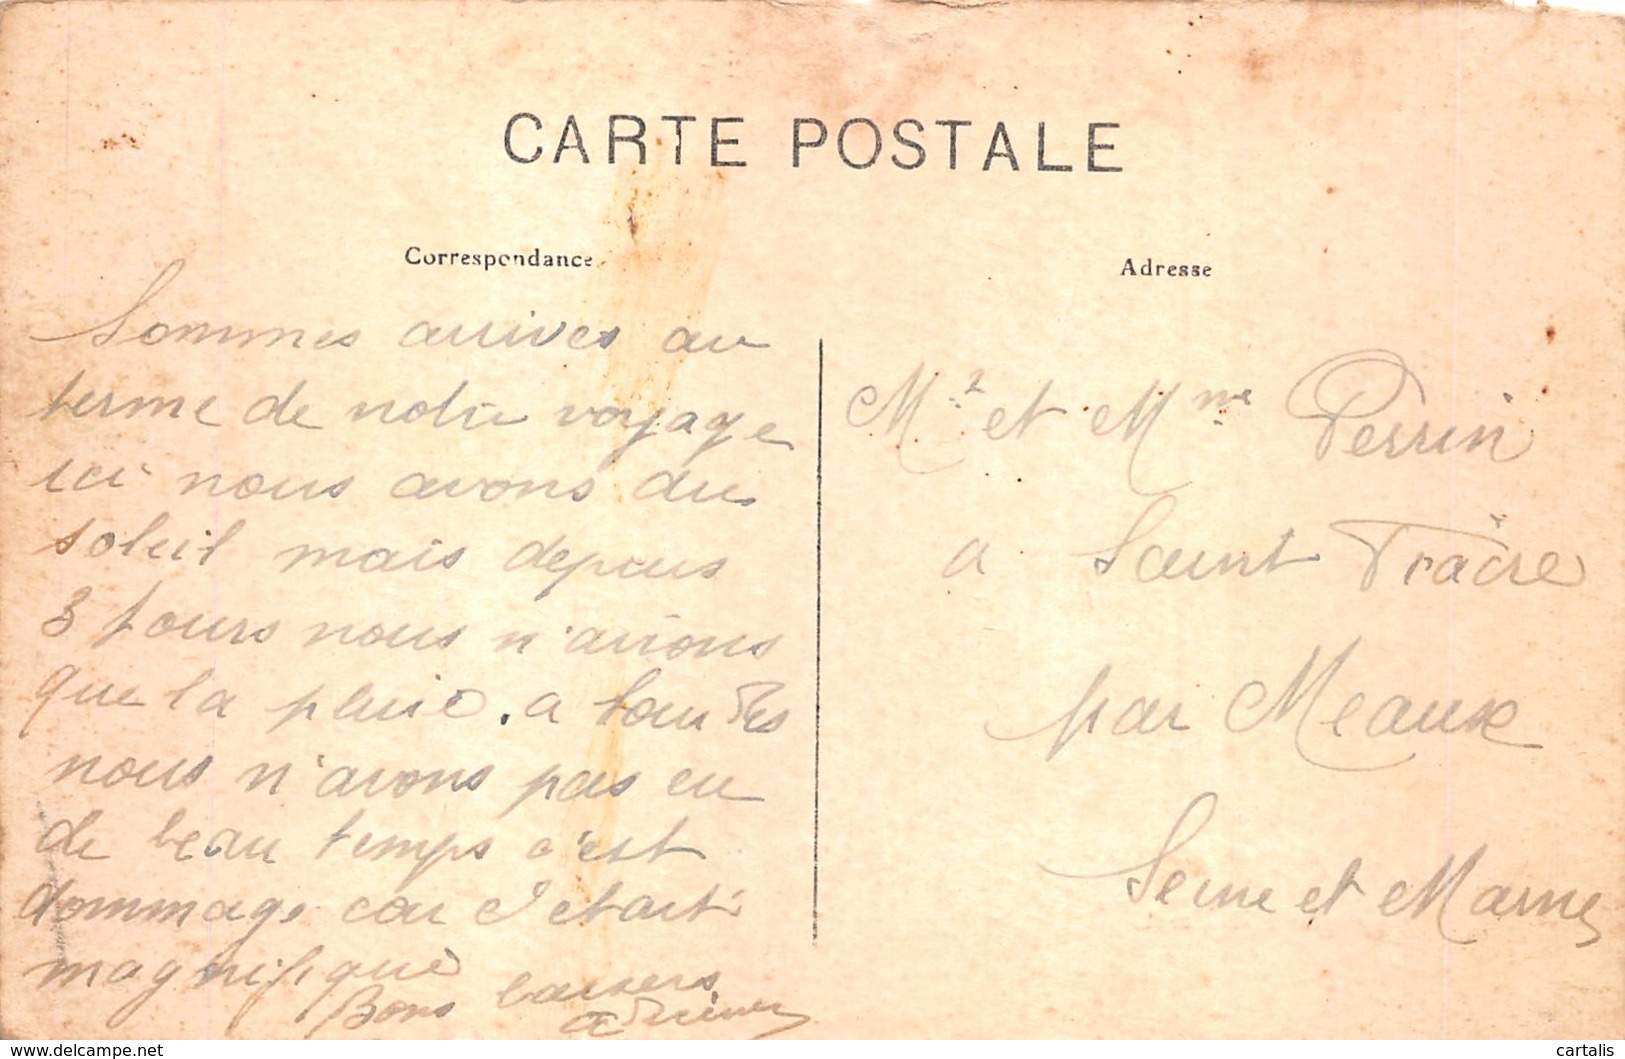 CARTE POSTALE
Correspondance
Sommes arrives au
terme de notre voyage
ici nous avons du
soleil mais depuis
3 jours nous n'avions
que la pluie. a
nous n'avons pas eu
de beau temps c'est
dommage car c'etait
magnifique
Bons baisers
Adresse
Mr et Mme Perrin
a Saint Fiacre
par Meaux
Seine et Marne
www.delcampe.net
cartalis